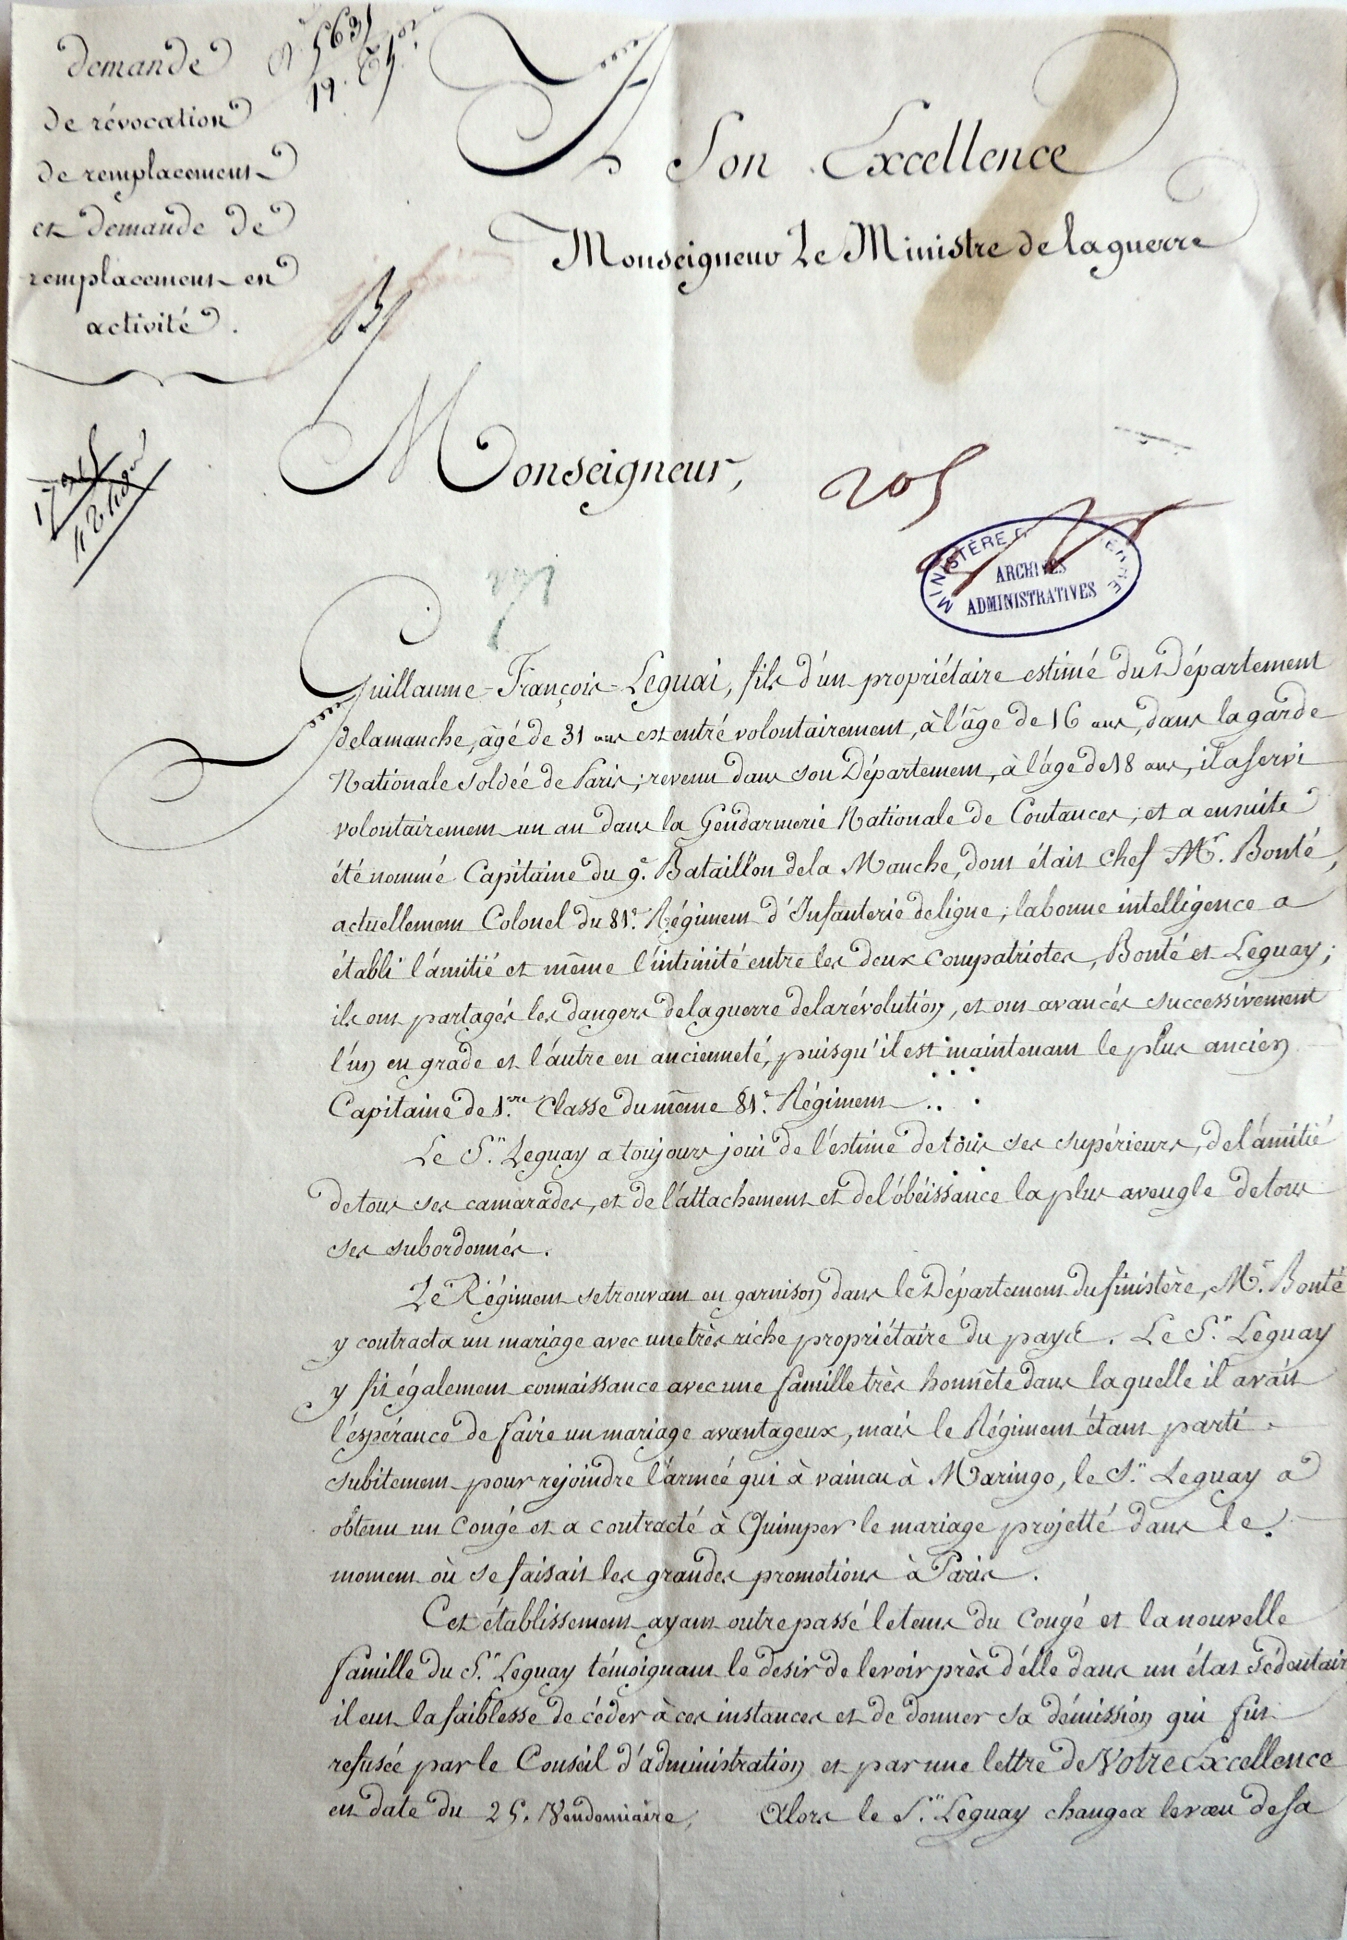 demande
de révocation
de remplacement
et demande de
remplacement en
activité.
N. 5631
19.
A Son Excellence
Monseigneur Le Ministre de la guerre
B
Monseigneur,
205
MINISTÈRE
ARCHIVES
ADMINISTRATIVES
Guillaume-François-Leguai, fils d'un propriétaire estimé du Département
de la manche, âgé de 31 ans est entré volontairement, à l'âge de 16 ans, dans la garde
Nationale soldée de Paris; revenu dans son Département, à l'âge de 18 ans, il a servi
volontairement un an dans la Gendarmerie Nationale de Coutances; et a ensuite
été nommé Capitaine du 9e. Bataillon de la Manche, dont était chef Mr. Bonté,
actuellement Colonel du 81e. Régiment d'Infanterie de ligne; la bonne intelligence a
établi l'amitié et même l'intimité entre les deux compatriotes, Bonté et Leguay;
ils ont partagés les dangers de la guerre de la révolution, et ont avancés successivement
l'un en grade et l'autre en ancienneté, puisqu'il est maintenant le plus ancien
Capitaine de 1.re Classe du même 81e. Régiment
Le Sr. Leguay a toujours joui de l'estime de tous ses supérieurs, de l'amitié
de tous ses camarades, et de l'attachement et de l'obéissance la plus aveugle de tous
ses subordonnés.
Le Régiment se trouvant en garnison dans le Département du finistère, Mr. Bonté
y contracta un mariage avec une très riche propriétaire du pays. Le Sr. Leguay
y fit également connaissance avec une famille très honnête dans laquelle il avait
l'espérance de faire un mariage avantageux, mais le Régiment étant parti
subitement pour rejoindre l'armée qui à vaincu à Maringo, le Sr. Leguay a
obtenu un congé et a contracté à Quimper le mariage projetté dans le
moment où se faisait les grandes promotions à Paris.
Cet établissement ayant outre passé le tems du Congé et la nouvelle
famille du Sr. Leguay témoignant le desir de le voir près d'elle dans un état Sédentair
il eut la faiblesse de céder à ces instances et de donner sa démission qui fut
refusée par le Conseil d'administration et par une lettre de Votre Excellence
en date du 25. Vendemiaire, Alors le Sr. Leguay changea le vœu de sa